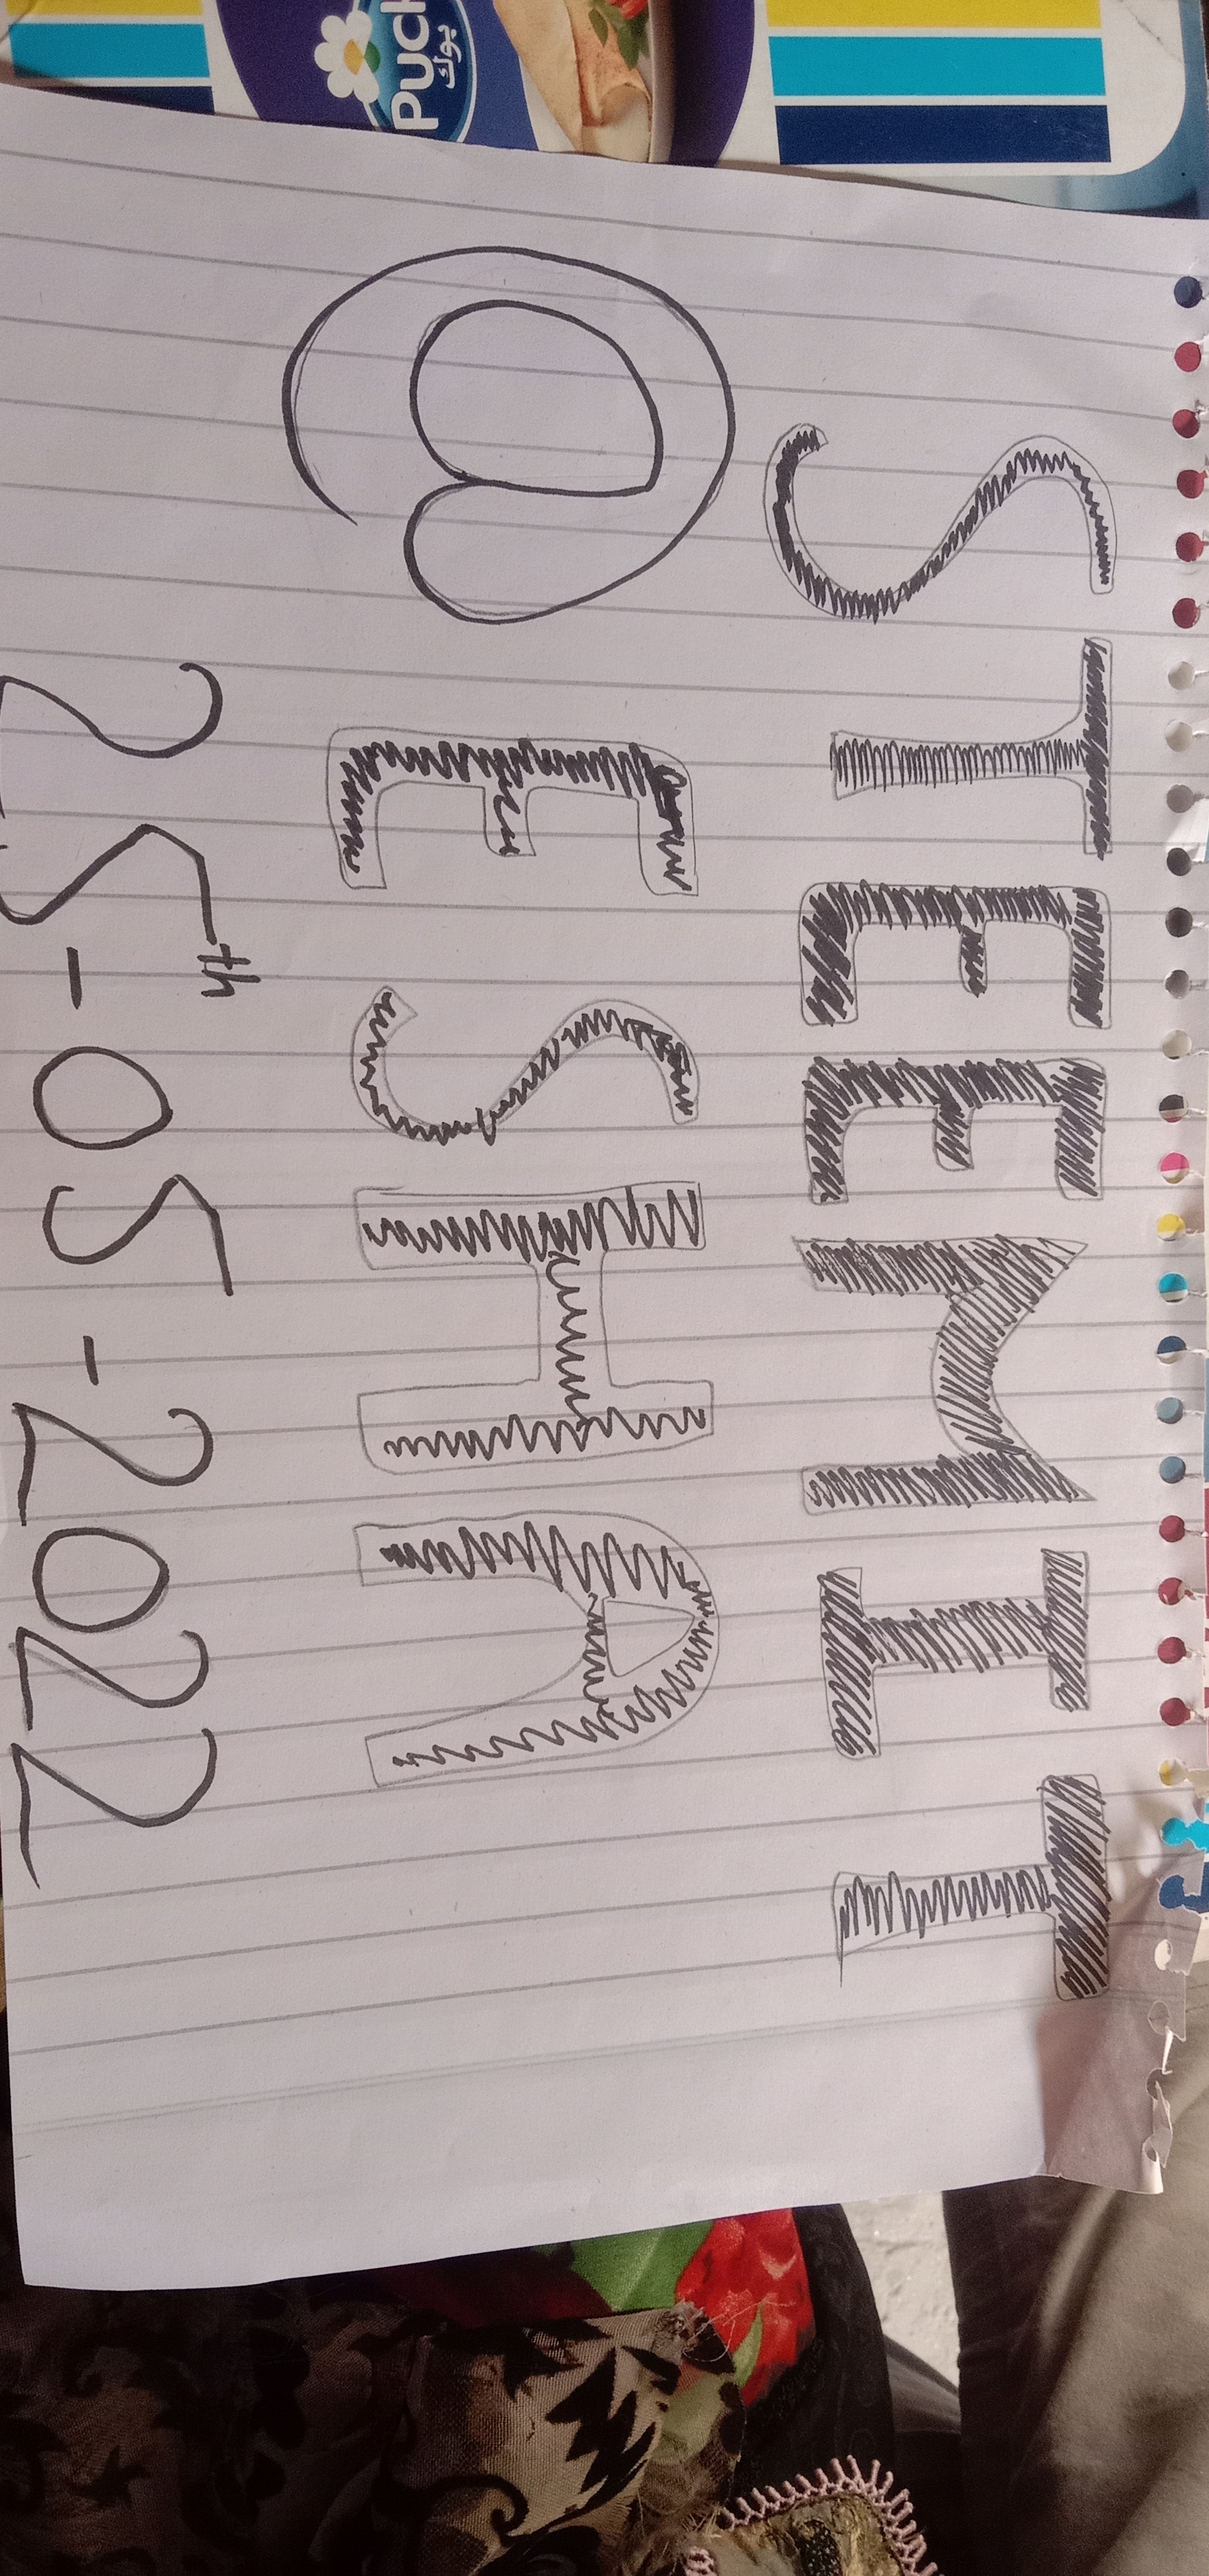 STEEMIT
@ESHA
25th-05-2022
Puck
بوك